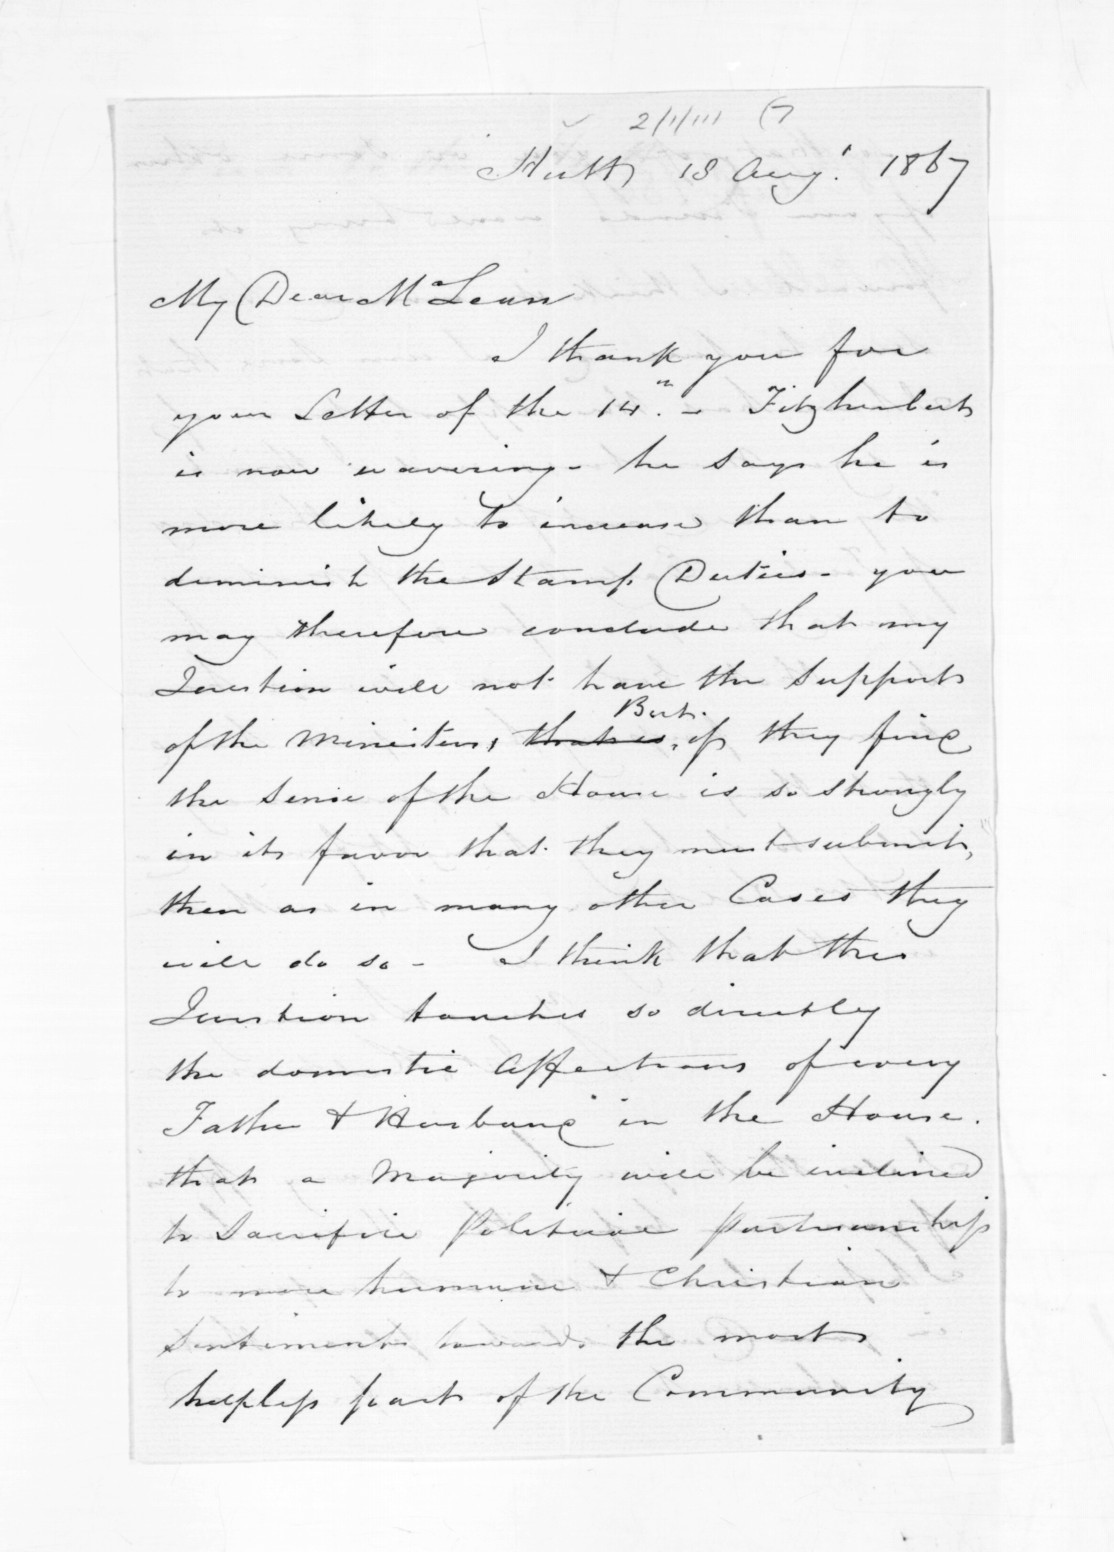 2/1/111 (7
Hutt 18 Augt. 1867
My Dear McLean
I thank you for
your Letter of the 14th. - Fitzherbert
is now wavering - he says he is
more likely to increase than to
diminish the Stamp Duties - you
may therefore conclude that my
Question will not have the support
of the Ministers, that is, But. if they find
the sense of the House is so strongly
in its favor that they must submit,
then as in many other Cases they
will do so - I think that this
Question touches so directly
the domestic Affections of every
Father & Husband in the House.
that a Majority will be inclined
to sacrifice Political Partisanship
to more humane & Christian
Sentiments towards the most
helpless part of the Community